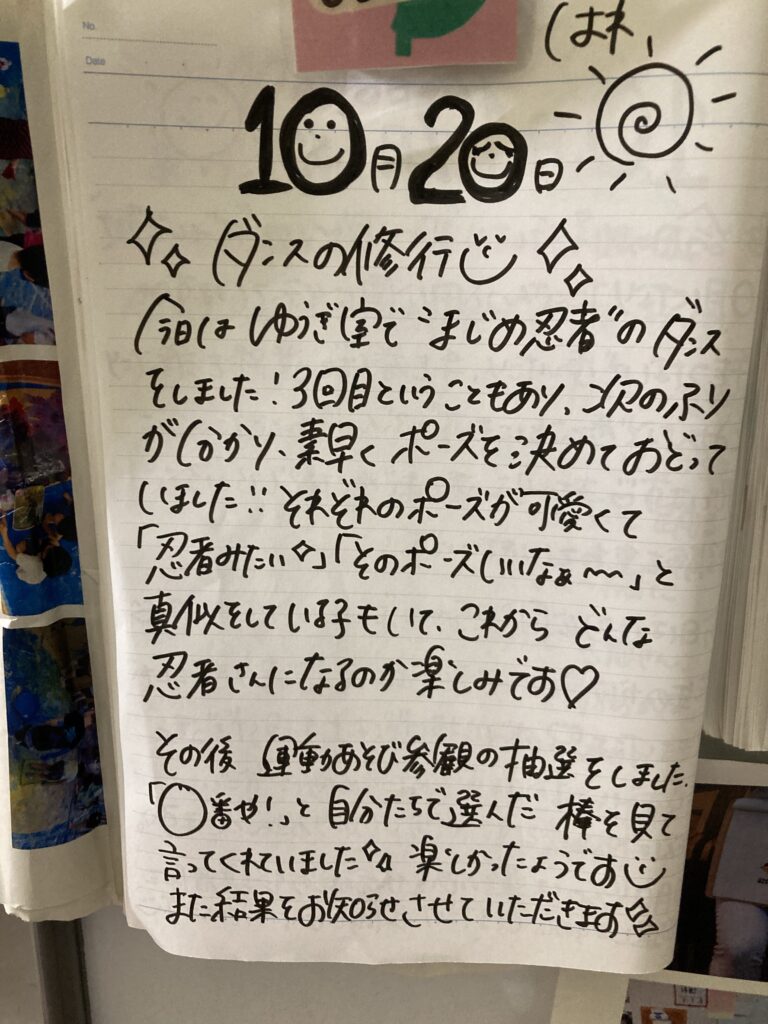 No.
Date
(はれ)
10月20日
ダンスの修行
今日は ゆうぎ室で “まじめ忍者”の ダンス
をしました!3回目ということもあり、次のふり
が分かり、素早く ポーズを決めておどって
いました!! それぞれのポーズが可愛くて
「忍者みたい」「そのポーズいいなぁ〜」と
真似をしている子もいて、これから どんな
忍者さんになるのか楽しみです♡
その後 運動あそび参観の抽選をしました。
「〇番や!」と 自分たちで選んだ 棒を見て
言ってくれていました 楽しかったようです
また結果をお知らせさせていただきます